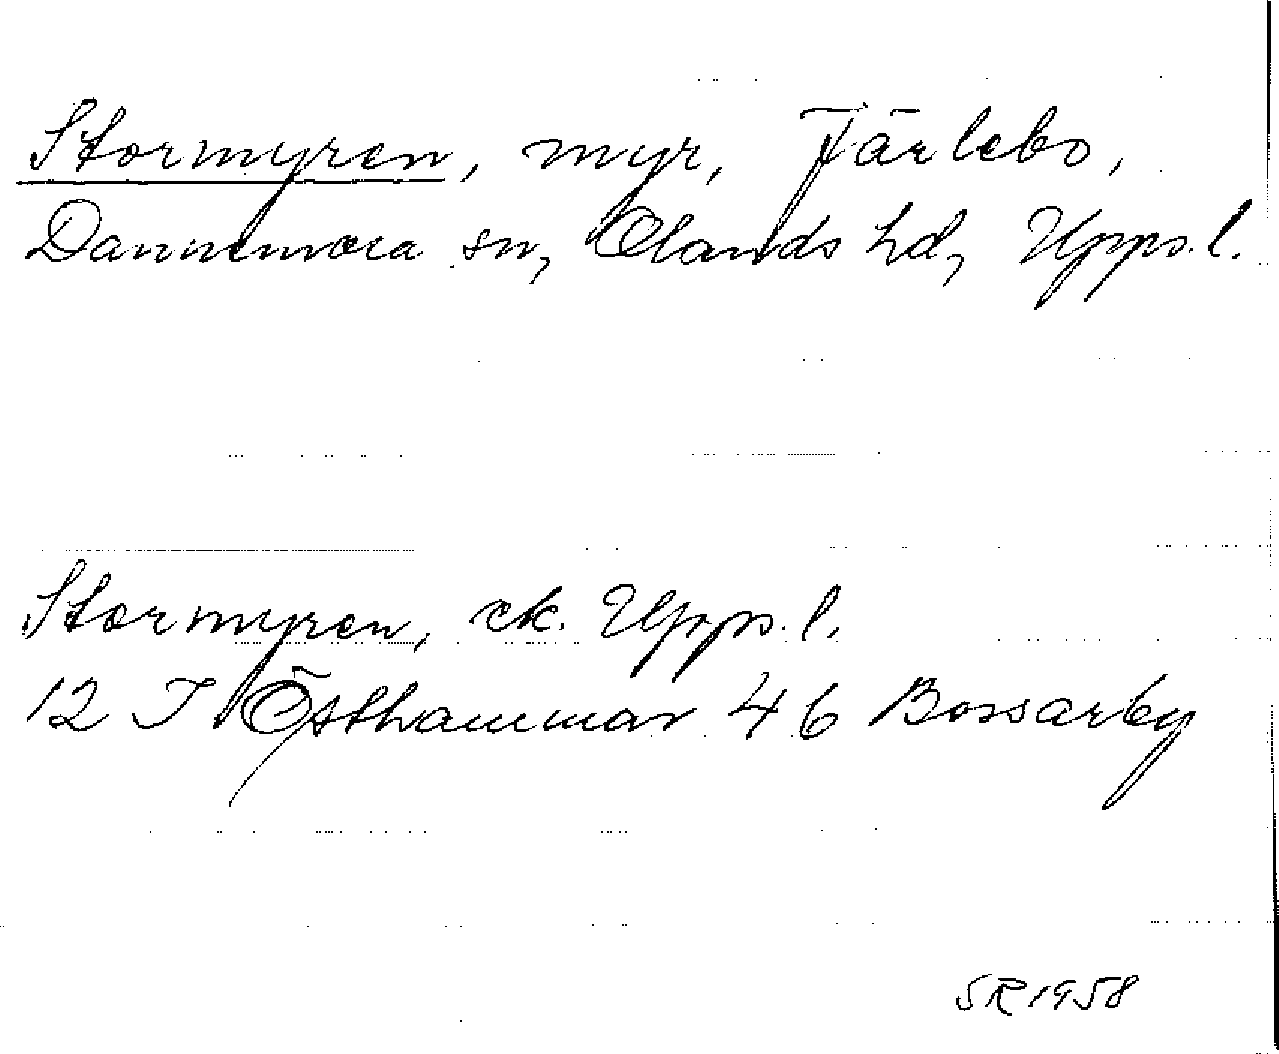 Stormyren, myr, Järlebo,
Dannemora sn, Olands hd, Uppl.
Stormyren, ek. Uppl.
12 I Östhammar 46 Bossarby
SR 1958